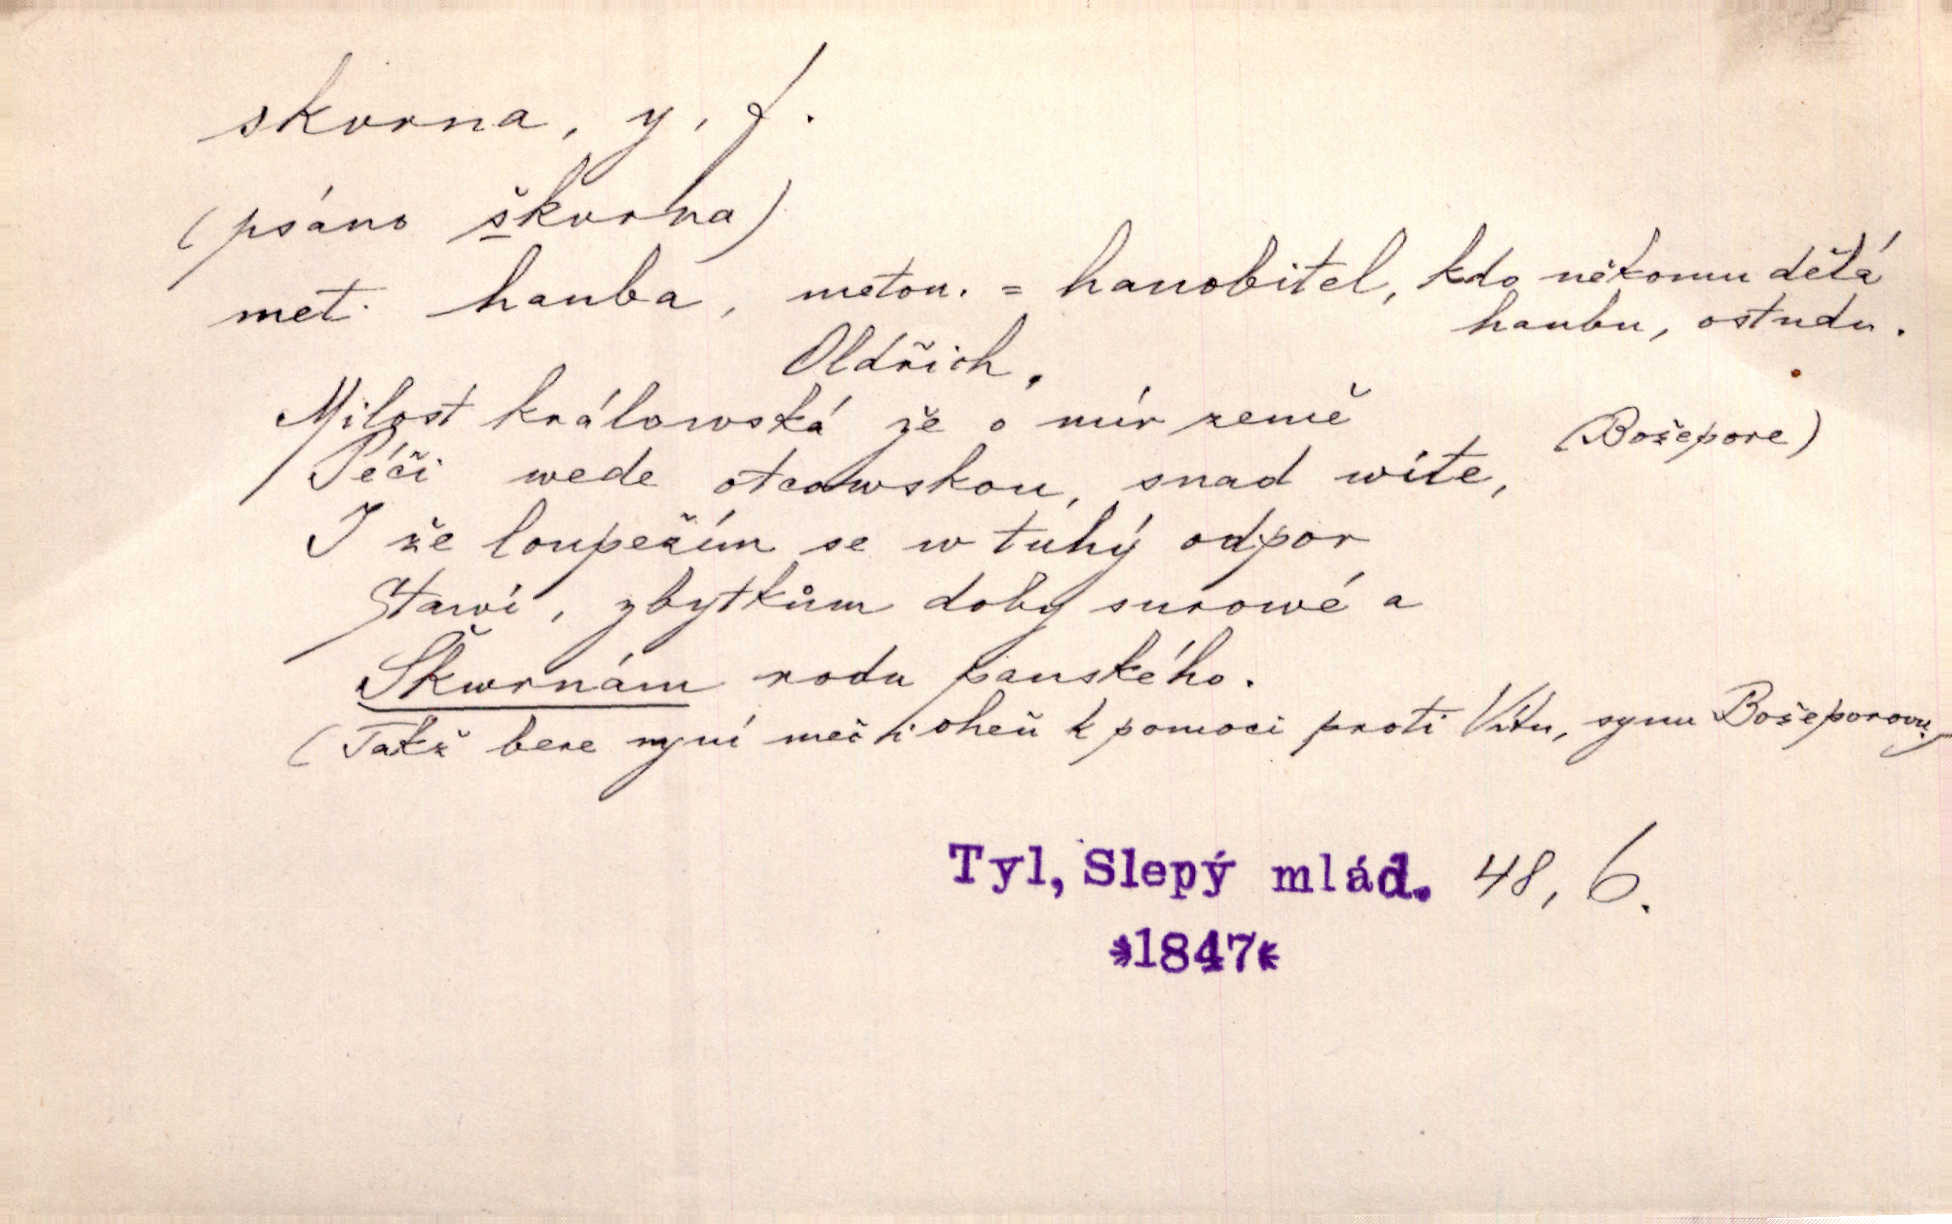 skvrna, y, f.
(psáno škvrna)
met. hanba, meton. = hanobitel, kdo někomu dělá
hanbu, ostudu.
Oldřich.
Milost králowská že o mír země
(Bošepore)
Péči wede otcowskou, snad wíte,
I že loupežím se w tuhý odpor
Stawí, zbytkům doby surowé a
Škwrnám rodu panského.
(Takž bere nyní meč i oheň k pomoci proti Vítu, synu Bošeporovu.)
Tyl, Slepý mlád. 48, 6.
*1847*